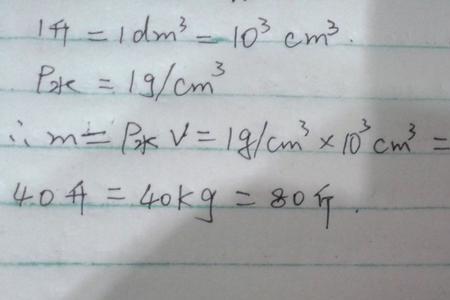 1升 = 1dm³ = 10³ cm³.
ρ水 = 1g/cm³
∴ m = ρ水 V = 1g/cm³ × 10³ cm³ =
40升 = 40kg = 80斤.